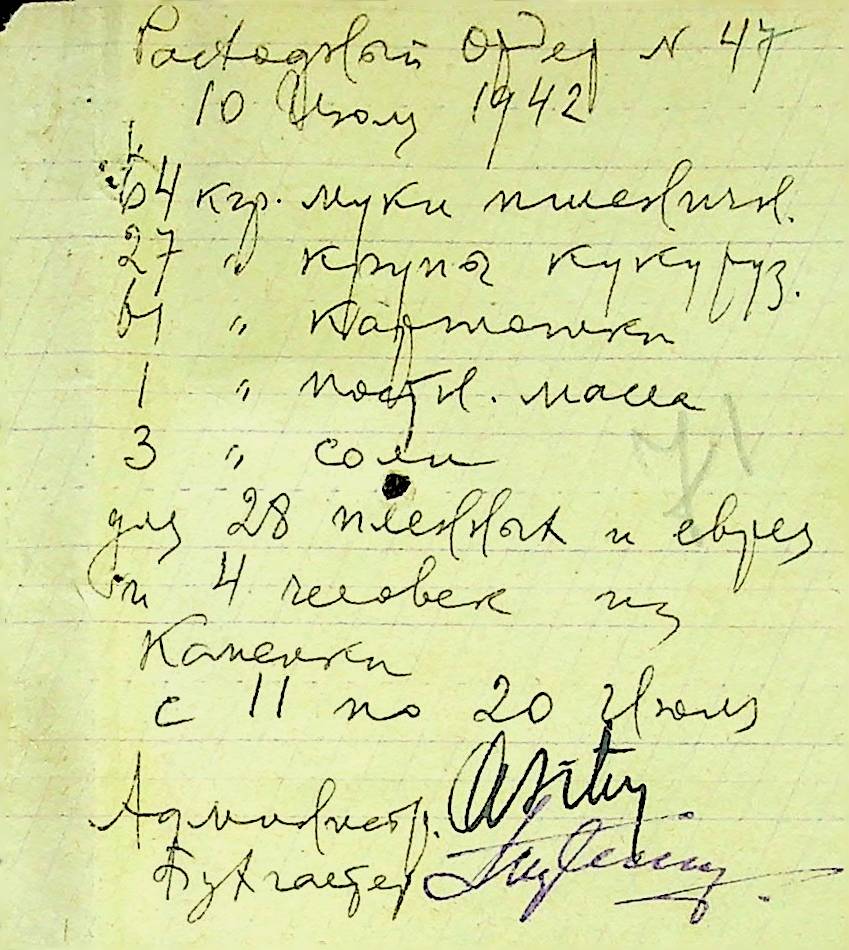 Расходный Ордер N 47
10 Июля 1942
64 кгр. муки пшеничн.
27 " крупы кукуруз.
61 " картошки
1 " постн. масла
3 " соли
71
для 28 пленных и еврея
и 4 человек из
Каменки
с 11 по 20 Июля
Администр.
Бухгалтер